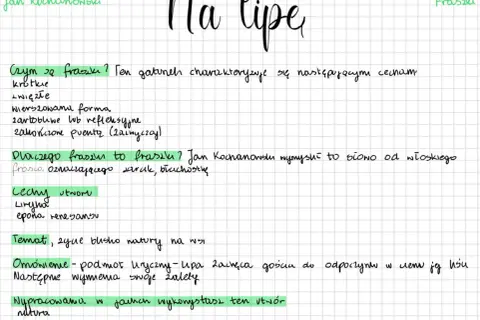 Jan Kochanowski
Fraszki
Na lipę
Czym są fraszki? Ten gatunek charakteryzuje się następującymi cechami
krótkie
zwięzłe
wierszowana forma
żartobliwe lub refleksyjne
zakończone puentą (zazwyczaj)
Dlaczego fraszki to fraszki? Jan Kochanowski wymyślił to słowo od włoskiego
frasca oznaczającego żarcik, błahostkę
Cechy utworu
Liryka
epoka renesansu
Temat, życie blisko natury na wsi
Omówienie - podmiot liryczny - lipa zachęca gościa do odpoczynku w cieniu jej liści
Następnie wymienia swoje zalety
Wypracowania w jakich wykorzystasz ten utwór
natura